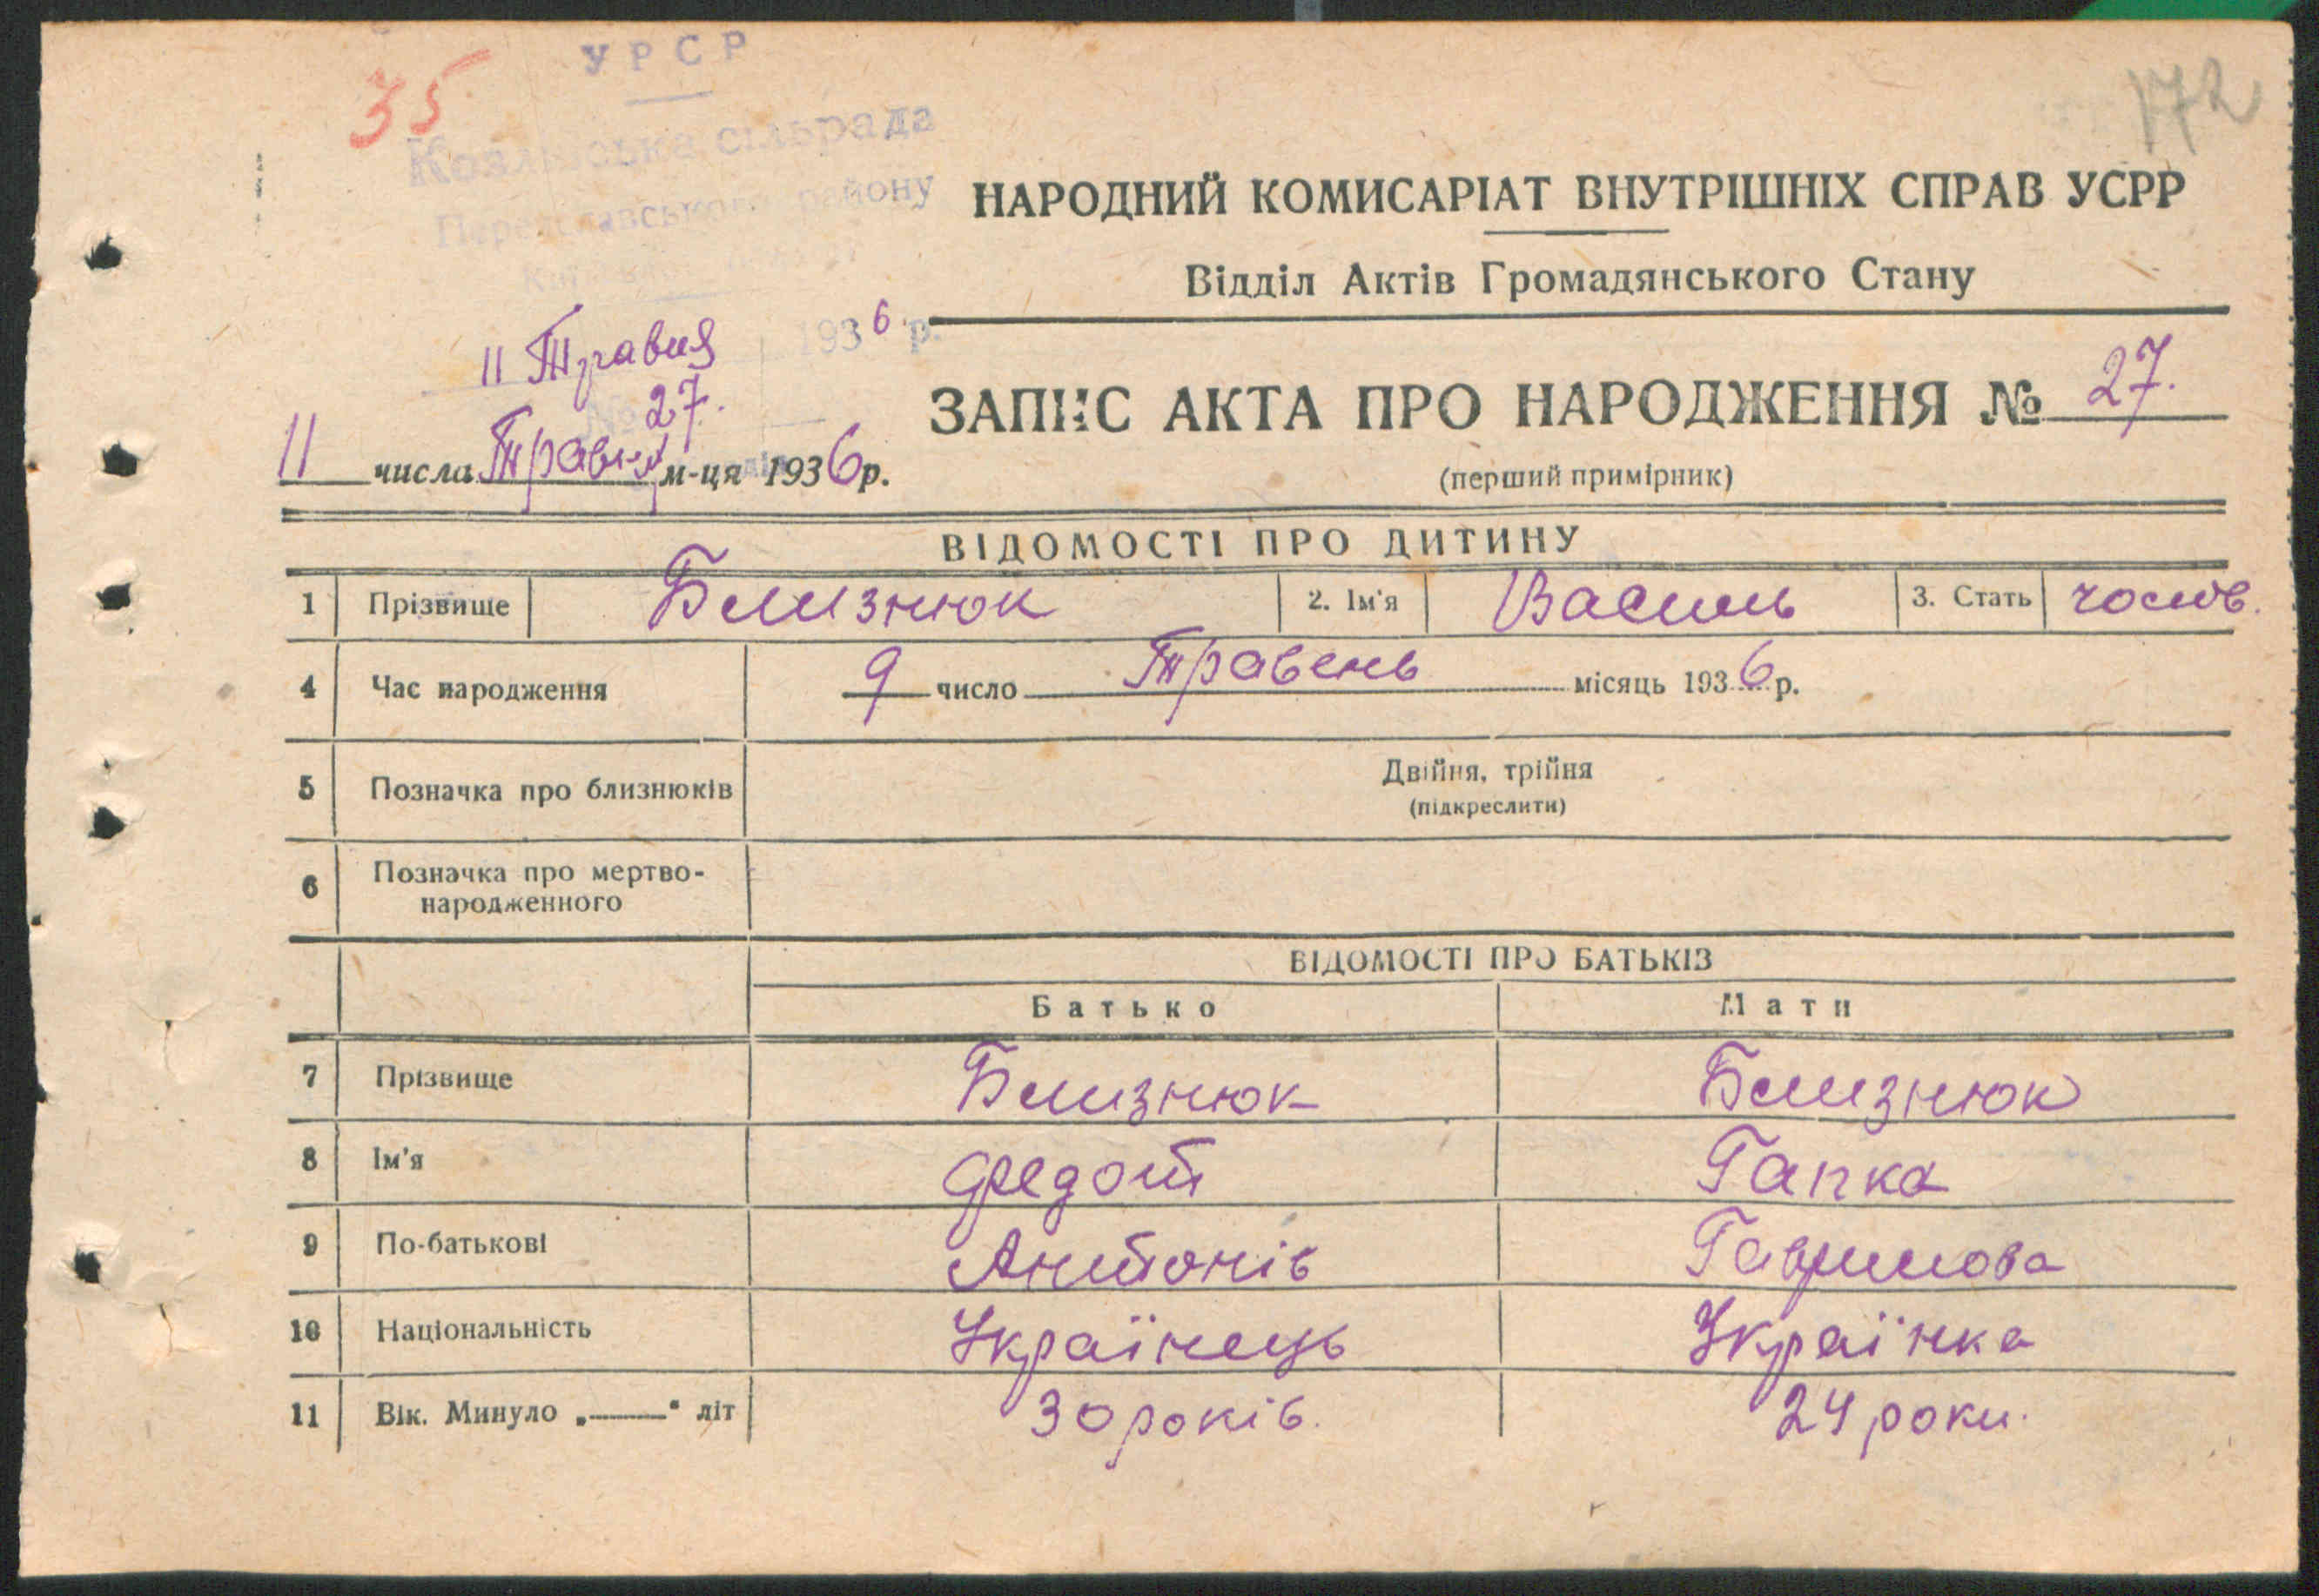 35
УРСР
172
сільрада
району
НАРОДНИЙ КОМИСАРІАТ ВНУТРІШНІХ СПРАВ УСРР
Відділ Актів Громадянського Стану
11 Травня 1936 р.
№ 27.
ЗАПИС АКТА ПРО НАРОДЖЕННЯ № 27.
11 числа Травня м-ця 1936 р.
(перший примірник)
ВІДОМОСТІ ПРО ДИТИНУ
1 Прізвище Близнюк 2. Ім'я Василь 3. Стать чолов.
4 Час народження 9 число Травень місяць 1936 р.
5 Позначка про близнюків Двійня, трійня
(підкреслити)
6 Позначка про мертво-
народженного
ВІДОМОСТІ ПРО БАТЬКІВ
Батько Мати
7 Прізвище Близнюк Близнюк
8 Ім'я Федот Гапка
9 По-батькові Антонів Гаврилова
10 Національність Українець Українка
11 Вік. Минуло „——“ літ 30 років. 24 роки.